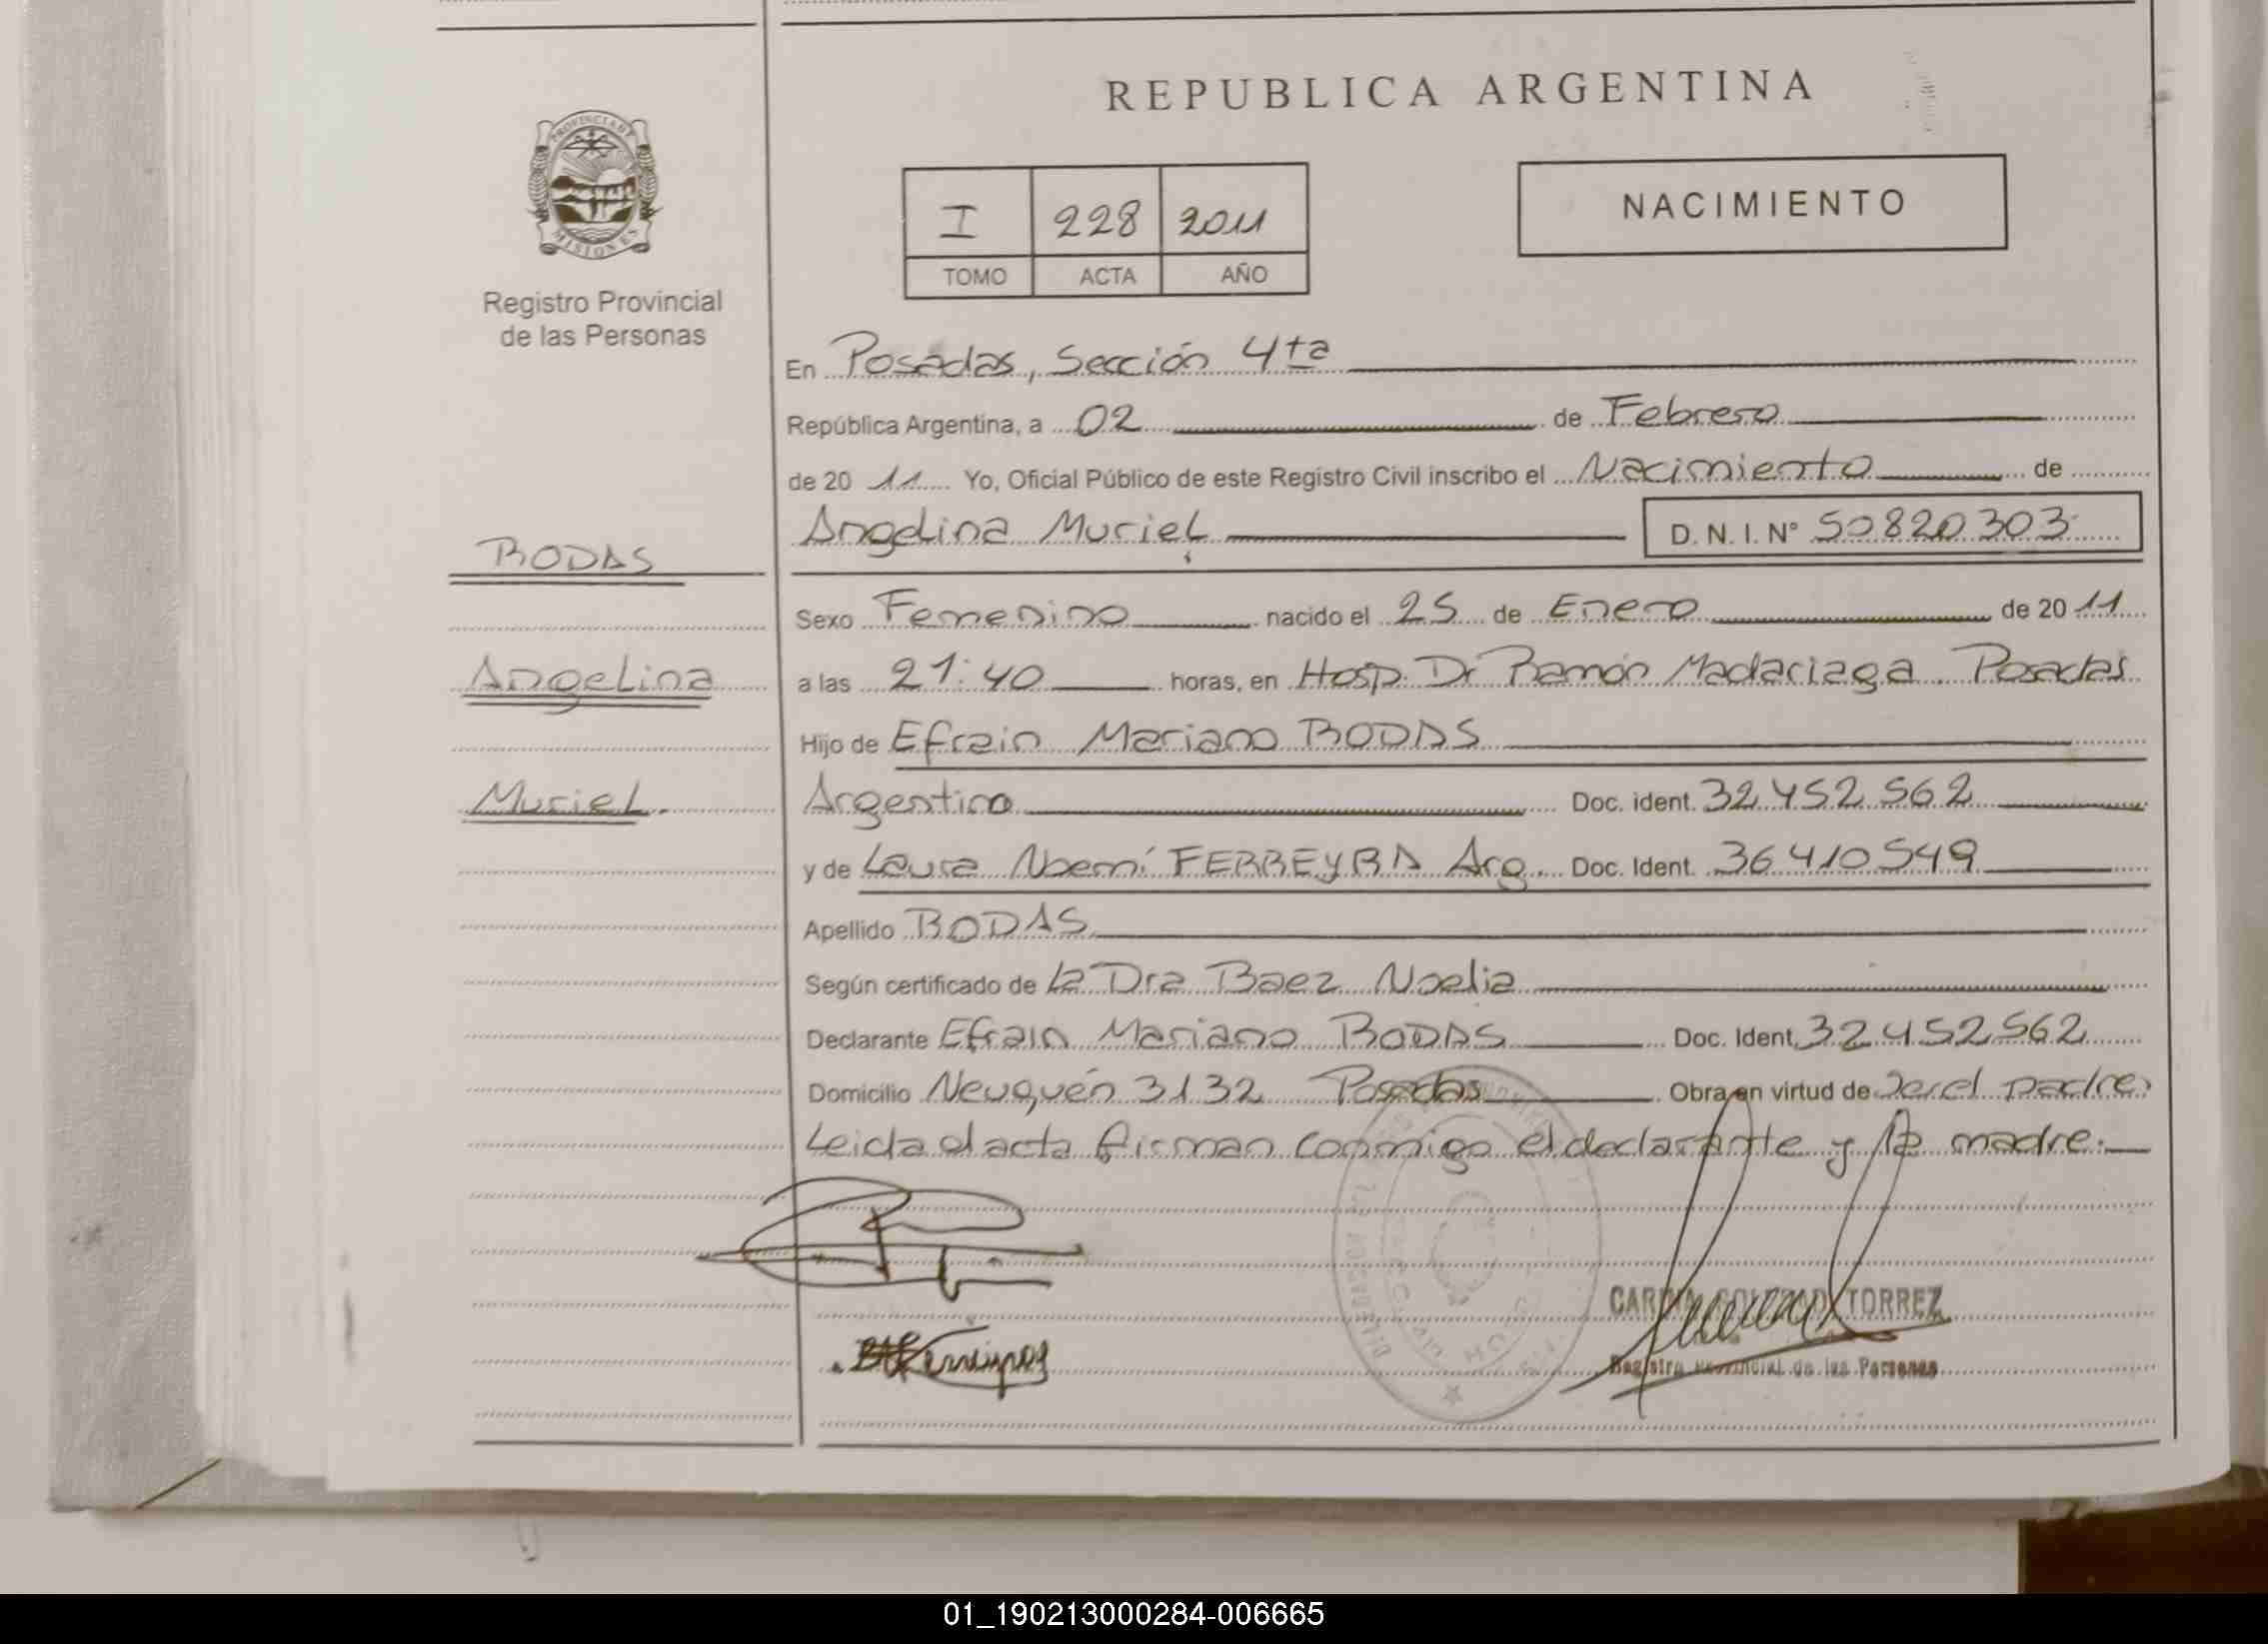 REPUBLICA ARGENTINA
PROVINCIA DE
MISIONES
Registro Provincial
de las Personas
I 228 2011
TOMO ACTA AÑO
NACIMIENTO
En Posadas, Sección 4ta
República Argentina, a 02 de Febrero
de 20 11 Yo, Oficial Público de este Registro Civil inscribo el Nacimiento de
Angelina Muriel D.N.I. N° 50820303
BODAS
Sexo Femenino nacido el 25 de Enero de 20 11
Angelina
a las 21:40 horas, en Hosp. Dr Ramón Madariaga. Posadas
Hijo de Efrain Mariano BODAS
Muriel.
Argentino Doc. ident. 32.452.562
y de Laura Noemí FERREYRA Arg. Doc. Ident. 36.410.549
Apellido BODAS
Según certificado de la Dra Baez Noelia
Declarante Efrain Mariano BODAS Doc. Ident. 32.452.562
Domicilio Neuquén 3132 Posadas Obra en virtud de Ser el padre
Leida el acta firman conmigo el declarante y la madre.
TORREZ
Registro Provincial de las Personas
01_190213000284-006665